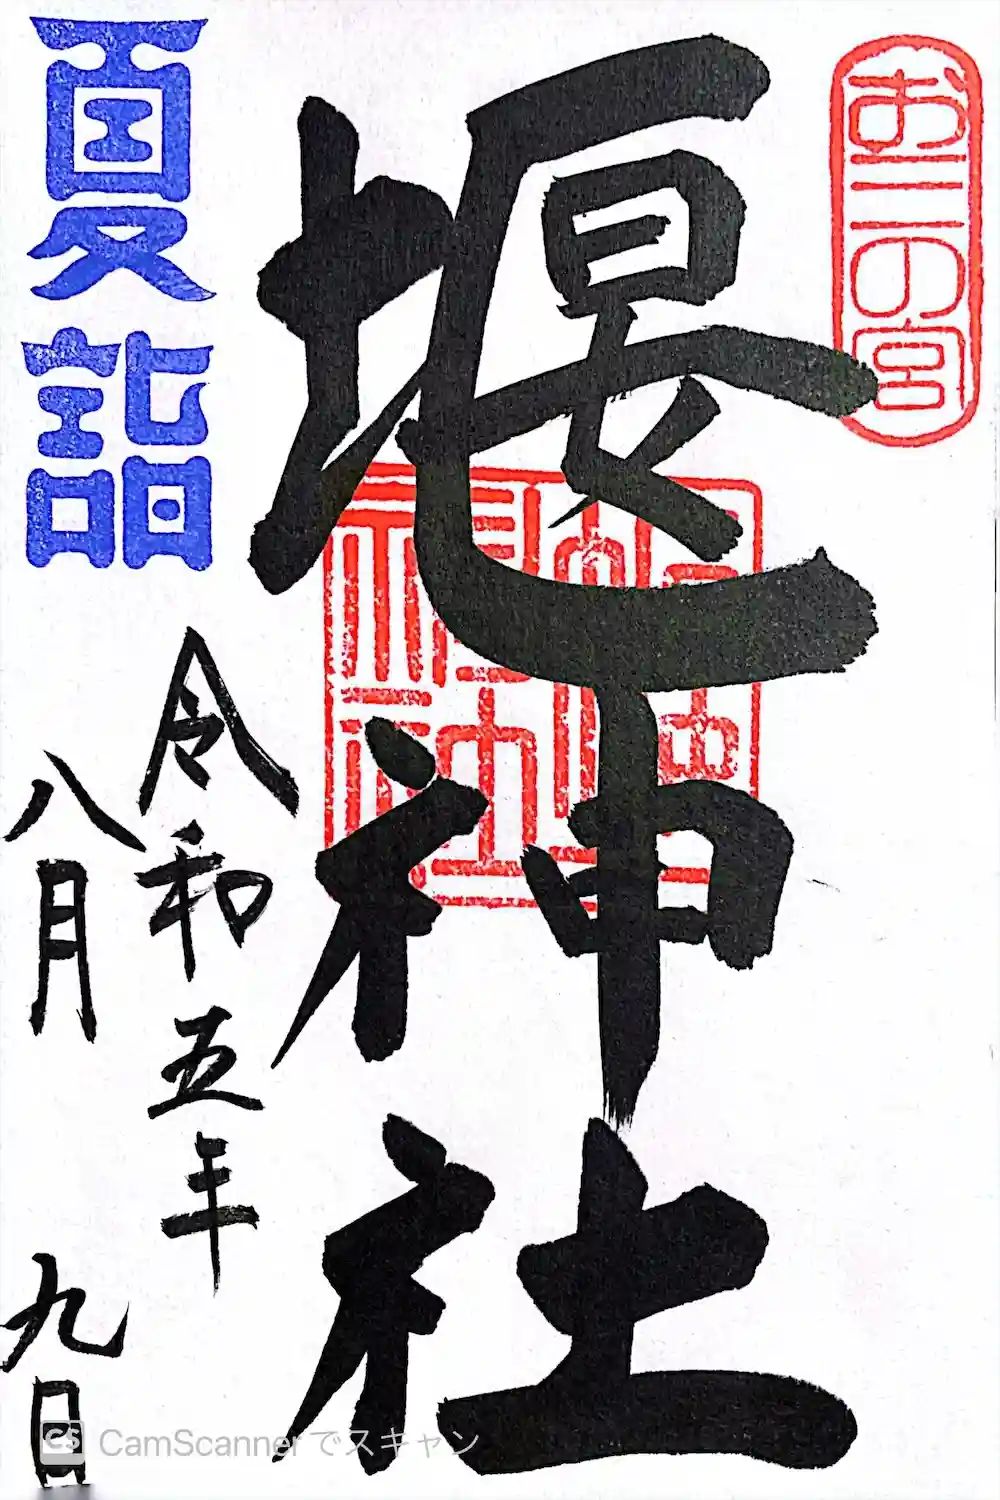 お三の宮
堰神社
夏詣
令和五年
八月九日
CS CamScannerでスキャン